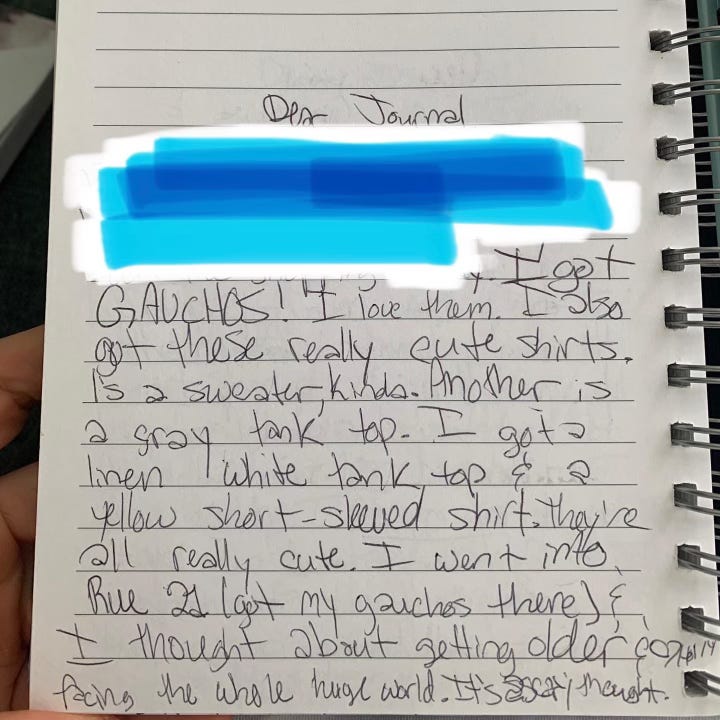 Dear Journal
I got
GAUCHOS! I love them. I also
got these really cute shirts.
1's a sweater, kinda. Another is
a gray tank top. I got a
linen white tank top & a
yellow short-sleeved shirt. they're
all really cute. I went into
Rue 21 (got my gauchos there) &
I thought about getting older &
facing the whole huge world. It's scary thought.